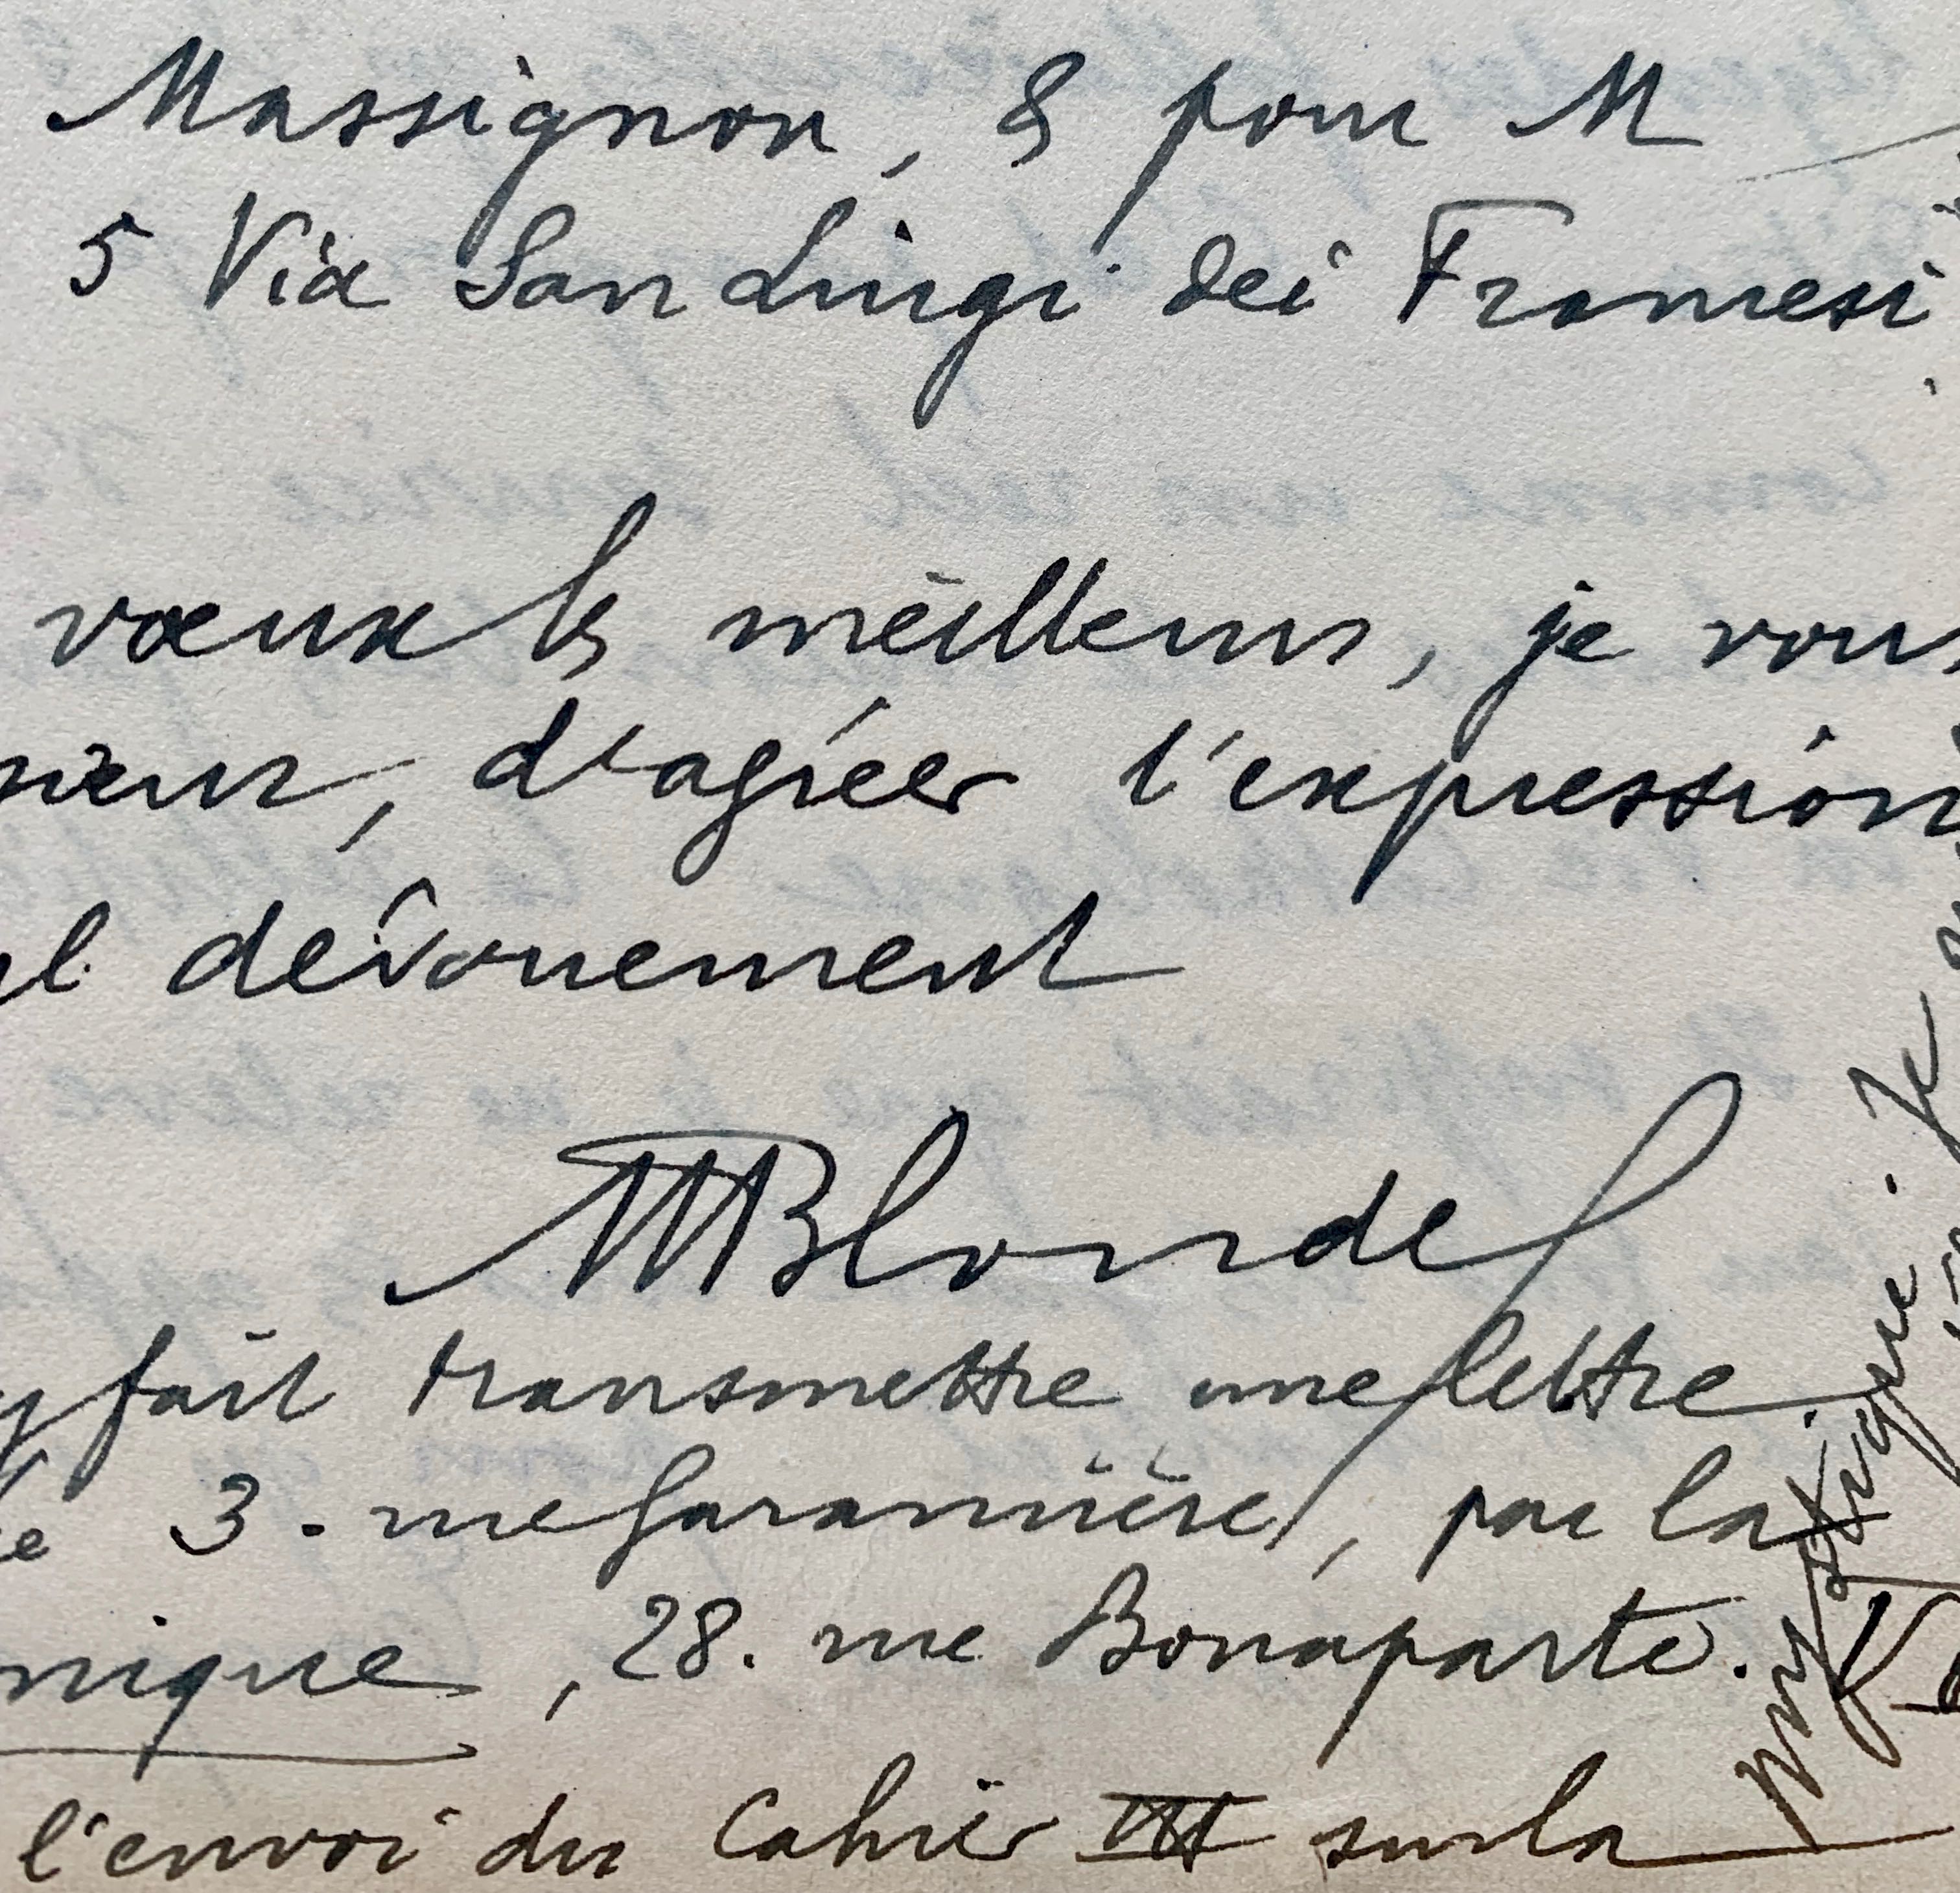 Massignon, & pour M
5 Via San Luigi dei Francesi
vœux les meilleurs, je vous
sieur, d'agréer l'expression
dévouement
MBlondel
fait transmettre une lettre
3. rue Garancière, par la
nique, 28. rue Bonaparte.
l'envoi du Cahier III sur la
mystique. Je